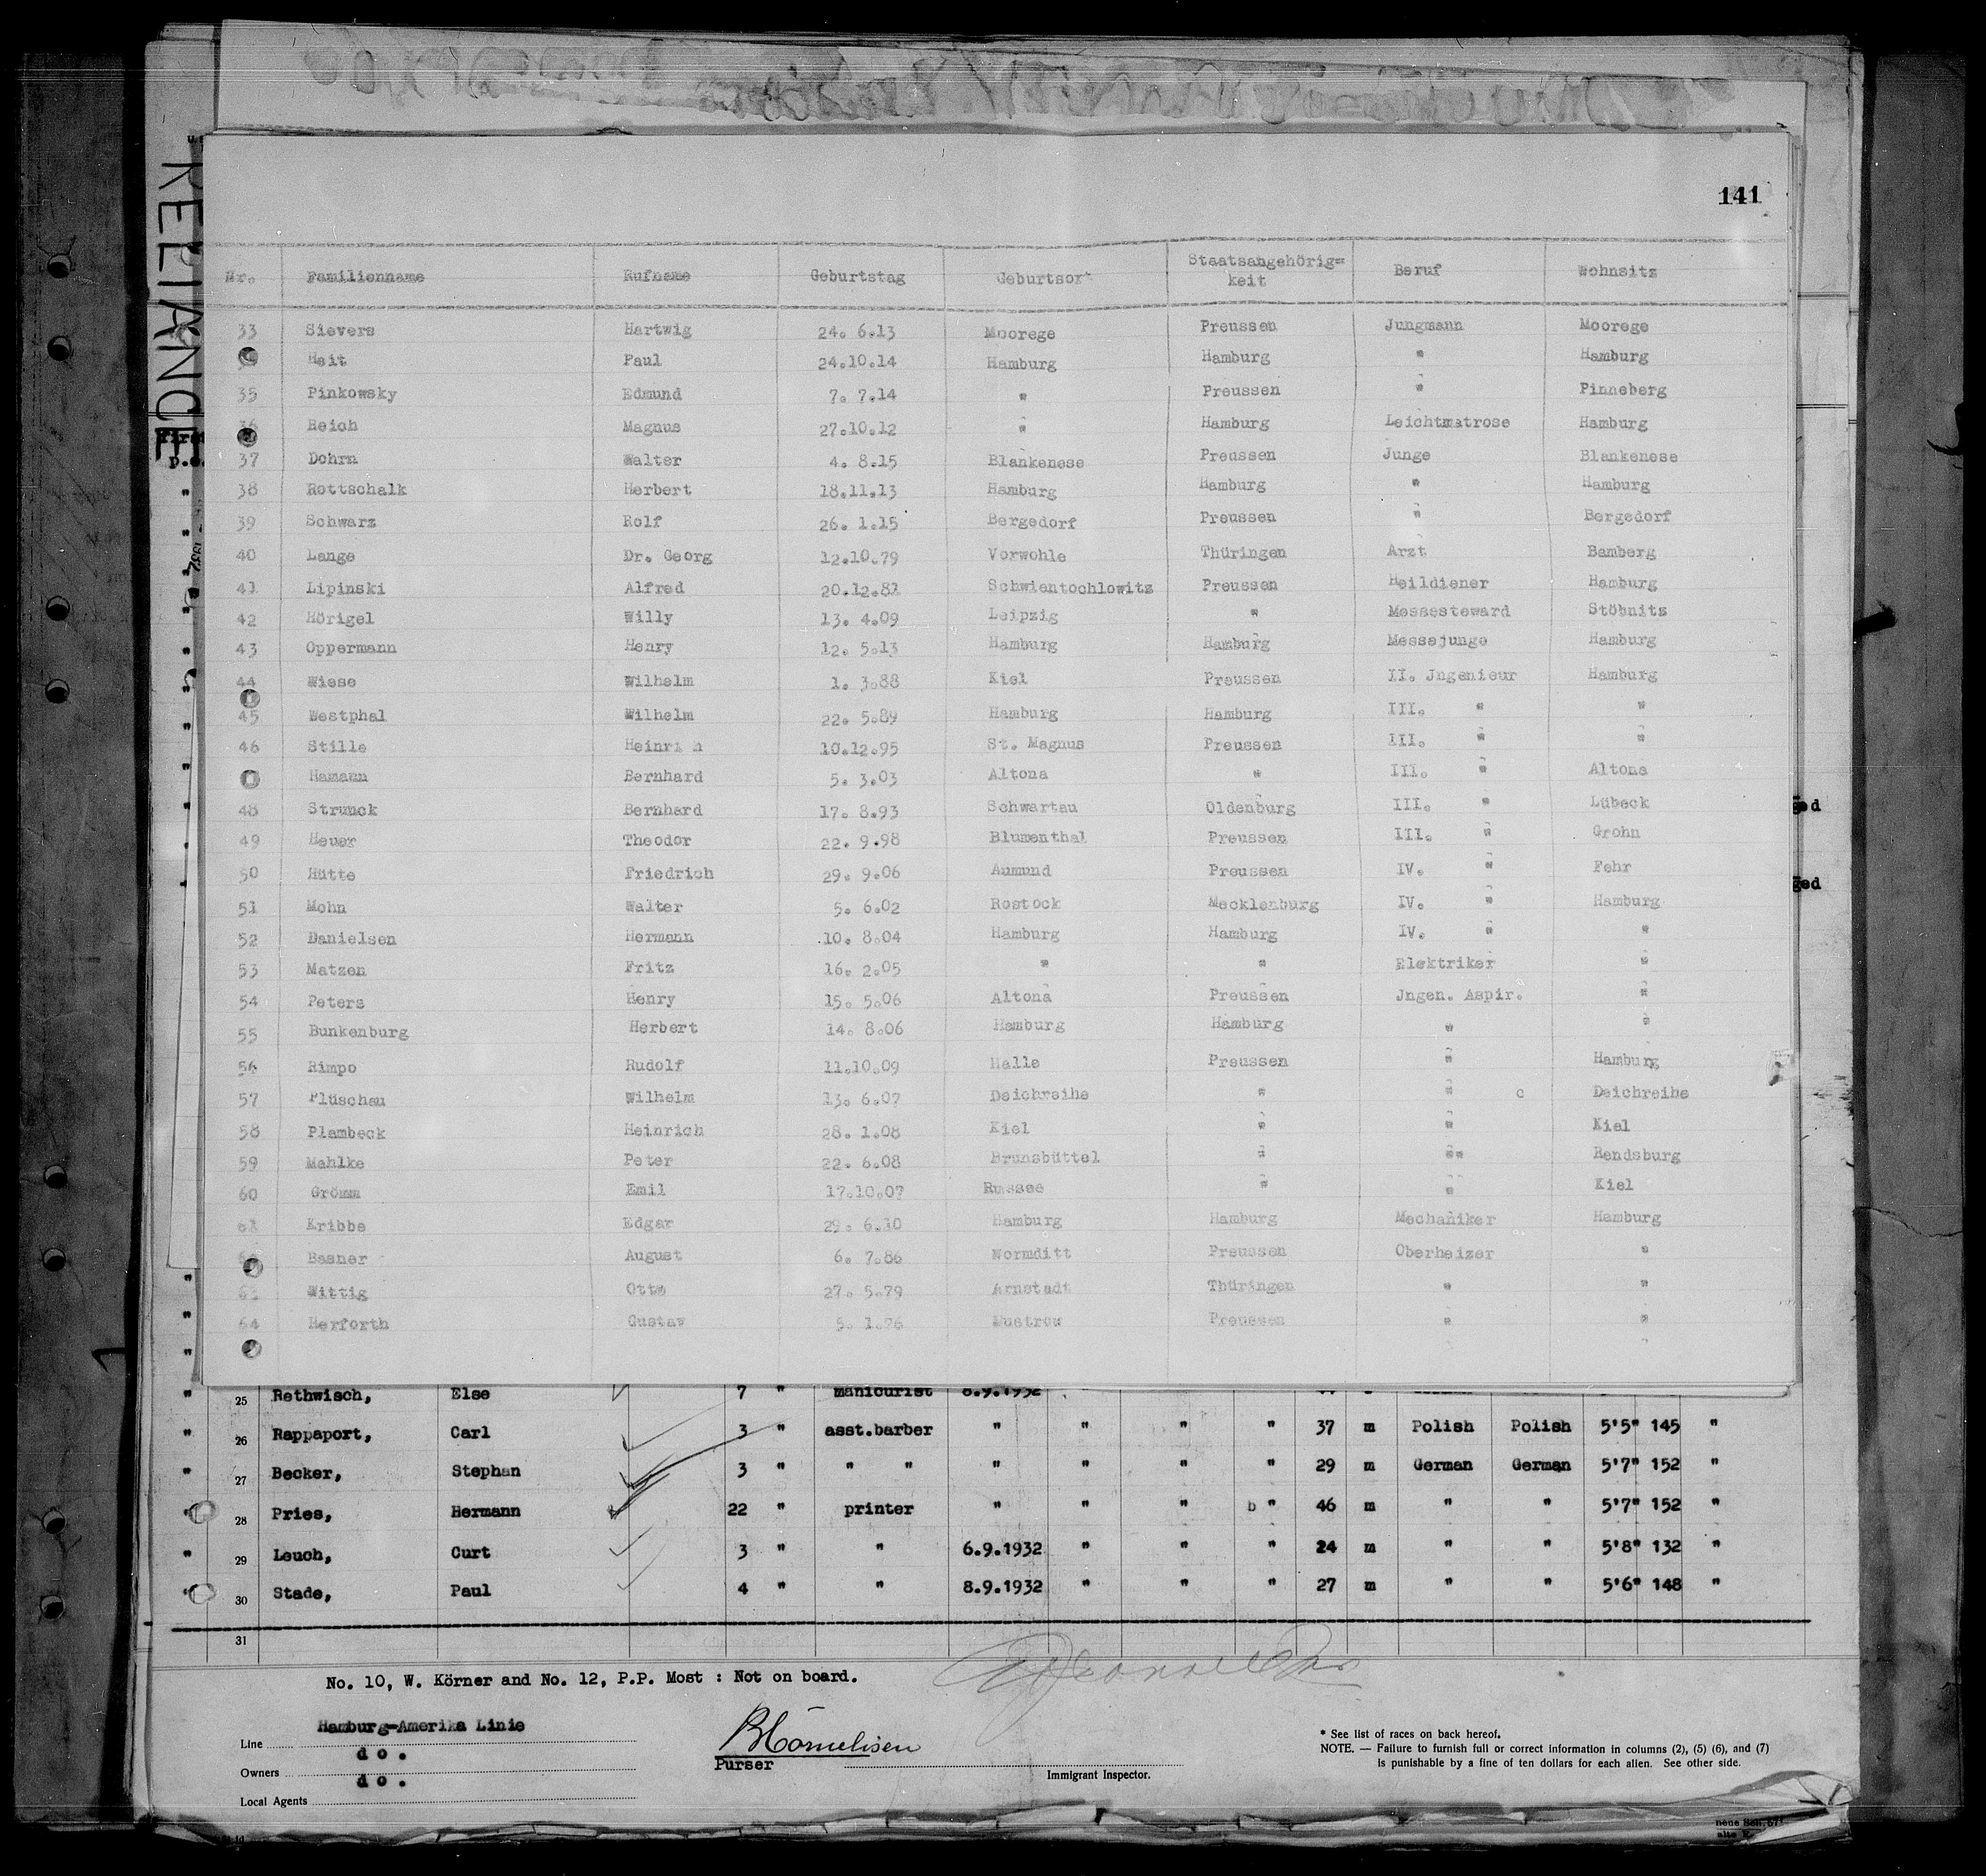 141
RELIANCE
Nr. Familienname Rufname Geburtstag Geburtsort Staatsangehörig= keit Beruf Wohnsitz
33 Sievers Hartwig 24. 6.13 Moorege Preussen Jungmann Moorege
Heit Paul 24.10.14 Hamburg Hamburg " Hamburg
35 Pinkowsky Edmund 7. 7.14 " Preussen " Pinneberg
36 Reich Magnus 27.10.12 " Hamburg Leichtmatrose Hamburg
37 Dohrn Walter 4. 8.15 Blankenese Preussen Junge Blankenese
38 Rottschalk Herbert 18.11.13 Hamburg Hamburg " Hamburg
39 Schwarz Rolf 26. 1.15 Bergedorf Preussen " Bergedorf
40 Lange Dr. Georg 12.10.79 Vorwohle Thüringen Arzt Bamberg
41 Lipinski Alfred 20.12.81 Schwientochlowitz Preussen Heildiener Hamburg
42 Hörigel Willy 13. 4.09 Leipzig " Messesteward Stöbnitz
43 Oppermann Henry 12. 5.13 Hamburg Hamburg Messejunge Hamburg
44 Wiese Wilhelm 1. 3.88 Kiel Preussen II. Jngenieur Hamburg
45 Westphal Wilhelm 22. 5.89 Hamburg Hamburg III. " "
46 Stille Heinri h 10.12.95 St. Magnus Preussen III. " "
Hamann Bernhard 5. 3.03 Altona " III. " Altona
48 Strunck Bernhard 17. 8.93 Schwartau Oldenburg III. " Lübeck
49 Heuer Theodor 22. 9.98 Blumenthal Preussen III. " Grohn
50 Hütte Friedrich 29. 9.06 Aumund Preussen IV. " Fehr
51 Mohn Walter 5. 6.02 Rostock Mecklenburg IV. " Hamburg
52 Danielsen Hermann 10. 8.04 Hamburg Hamburg IV. " "
53 Matzen Fritz 16. 2.05 " " Elektriker "
54 Peters Henry 15. 5.06 Altona Preussen Jngen. Aspir. "
55 Bunkenburg Herbert 14. 8.06 Hamburg Hamburg " "
56 Rimpo Rudolf 11.10.09 Halle Preussen " Hamburg
57 Plüschau Wilhelm 13. 6.07 Deichreihe " " Deichreihe
58 Plambeck Heinrich 28. 1.08 Kiel " " Kiel
59 Mahlke Peter 22. 6.08 Brunsbüttel " "" Rendsburg
60 Grömm Emil 17.10.07 Russee " " Kiel
61 Kribbe Edgar 29. 6.10 Hamburg Hamburg Mechaniker Hamburg
Basner August 6. 7.86 Wormditt Preussen Oberheizer "
63 Wittig Otto 27. 5.79 Arnstadt Thüringen " "
64 Herforth Gustav 5. 1.76 Mustrow Preussen " "
" 25 Rethwisch, Else 7 " manicurist 8.9.1932
" 26 Rappaport, Carl 3 " asst.barber " " " " 37 m Polish Polish 5'5" 145 "
" 27 Becker, Stephan 3 " " " " " " " 29 m German German 5'7" 152 "
28 Pries, Hermann 22 " printer " " " b " 46 m " " 5'7" 152 "
" 29 Leuch, Curt 3 " " 6.9.1932 " " " 24 m " " 5'8" 132 "
30 Stade, Paul 4 " " 8.9.1932 " " " 27 m " " 5'6" 148 "
31
No. 10, W. Körner and No. 12, P.P. Most : Not on board.
Line Hamburg-Amerika Linie
Owners d o .
Local Agents d o .
Purser
Immigrant Inspector.
* See list of races on back hereof.
NOTE. — Failure to furnish full or correct information in columns (2), (5) (6), and (7)
is punishable by a fine of ten dollars for each alien. See other side.